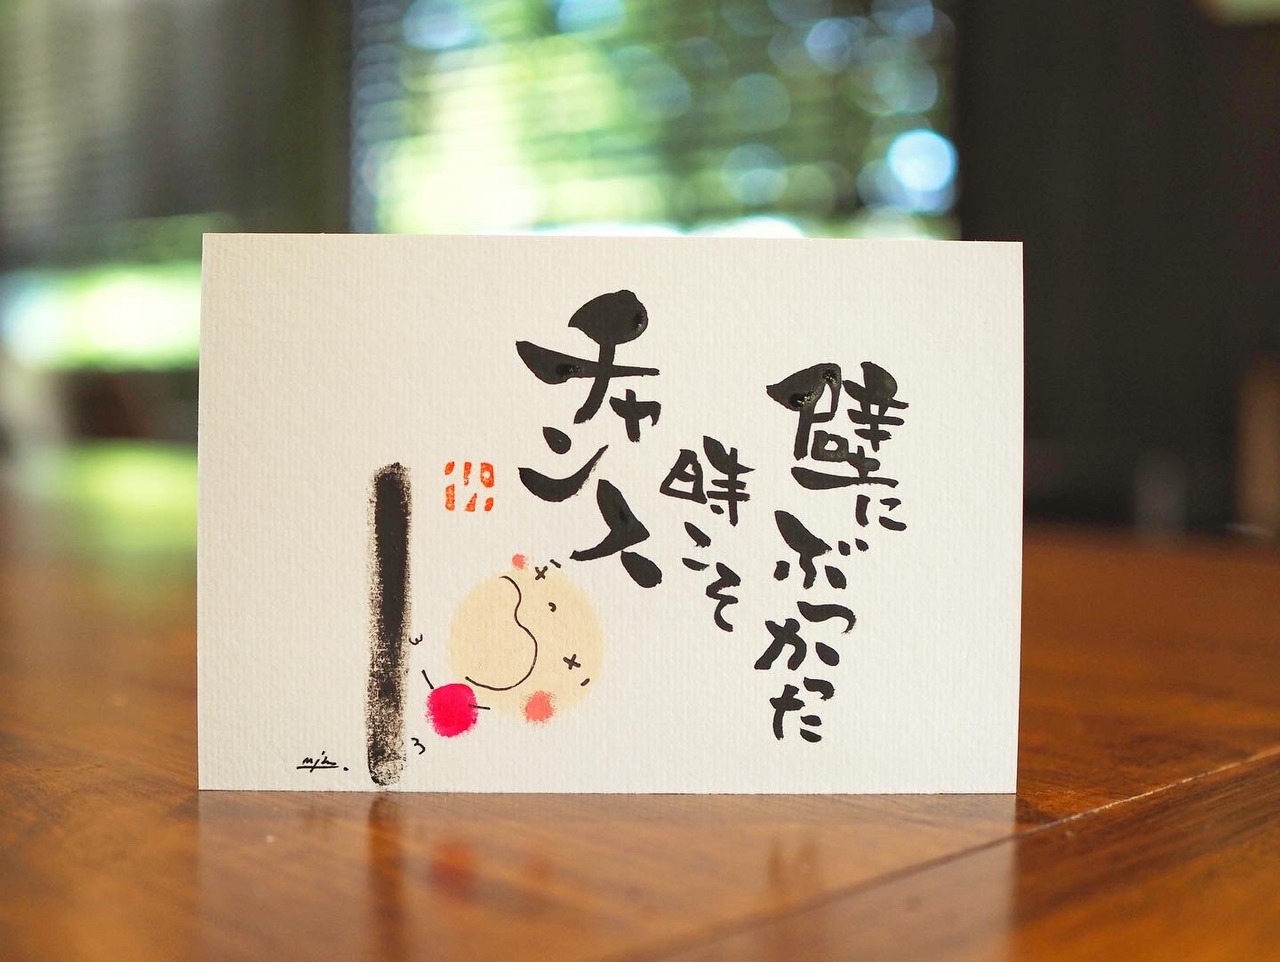 壁にぶつかった
時こそ
チャンス